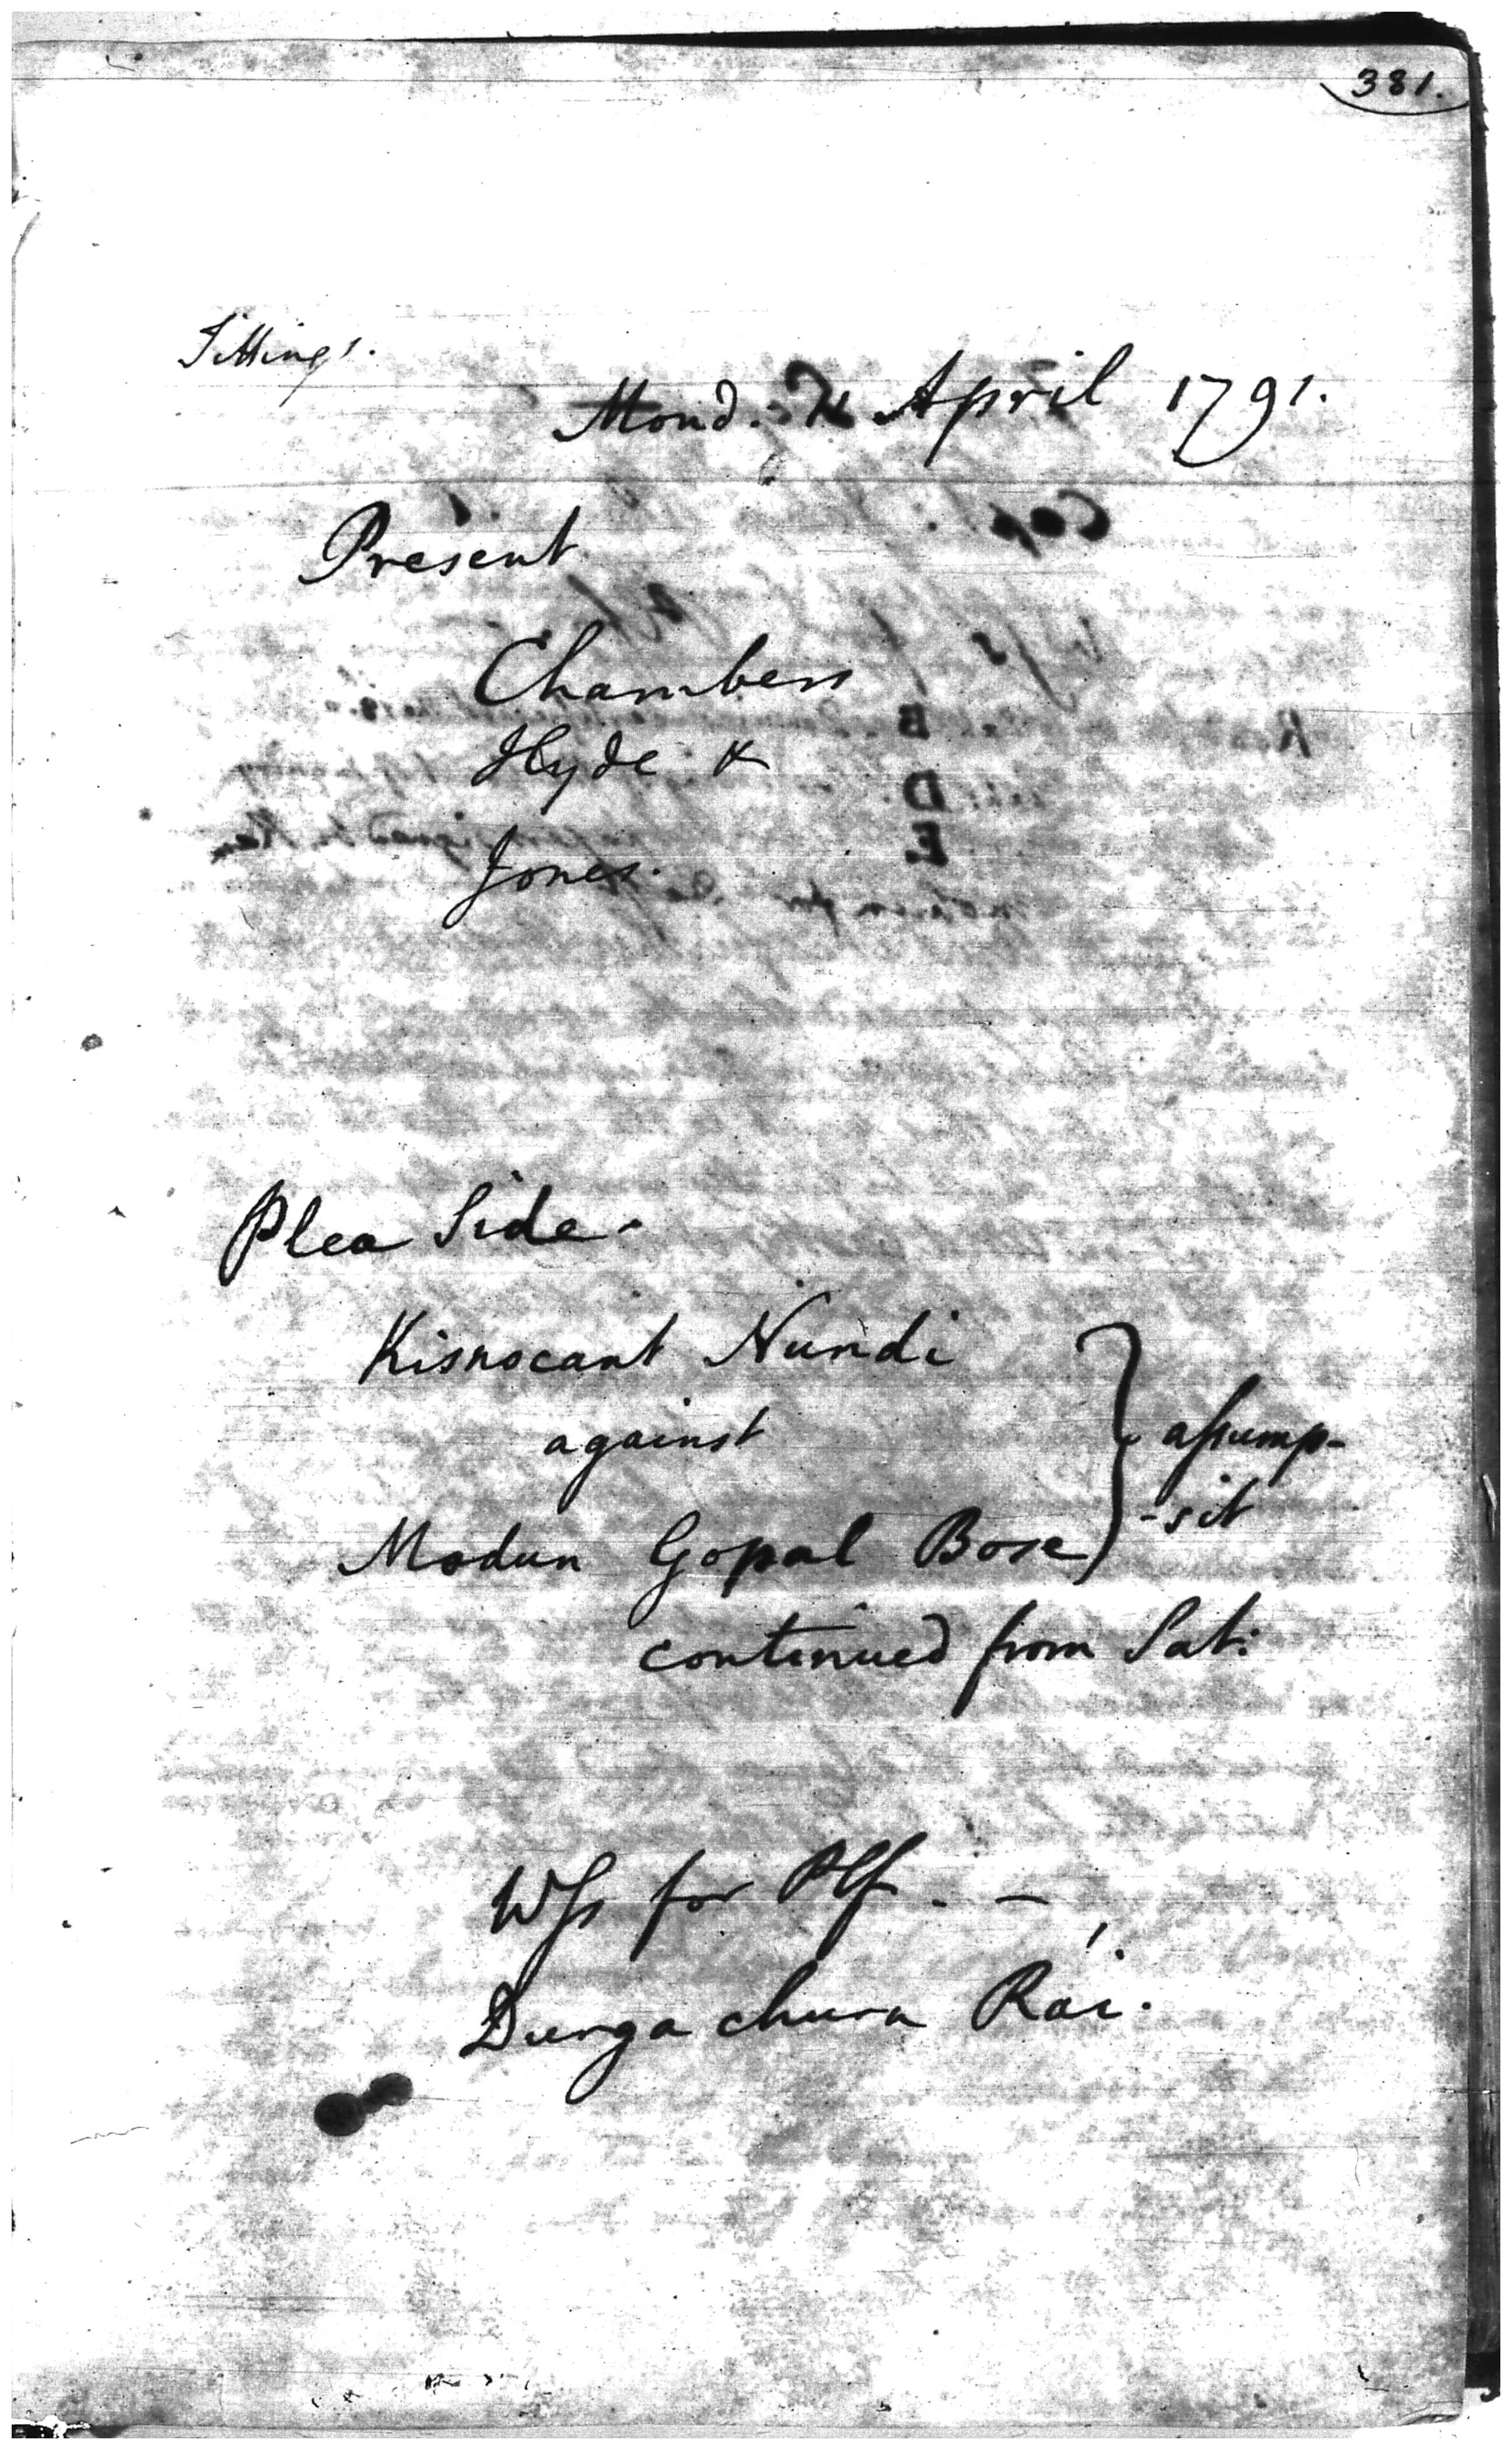 381.
Sittings.
Mond. April 1791.
Present
Chambers
Hyde &
Jones.
Plea Side.
Kisnocant Nundi
against
Modun Gopal Bose
assump-
-sit
continued from Sat:
Wss for Plf. -
Durga churn Rai.